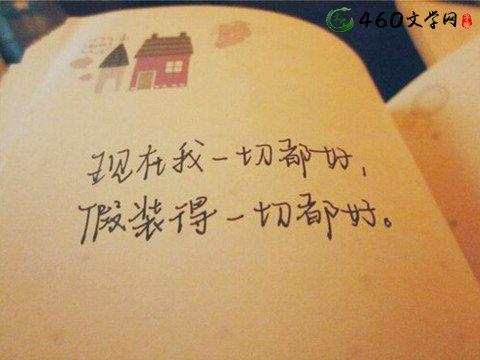 460文学网
现在我一切都好，
假装得一切都好。